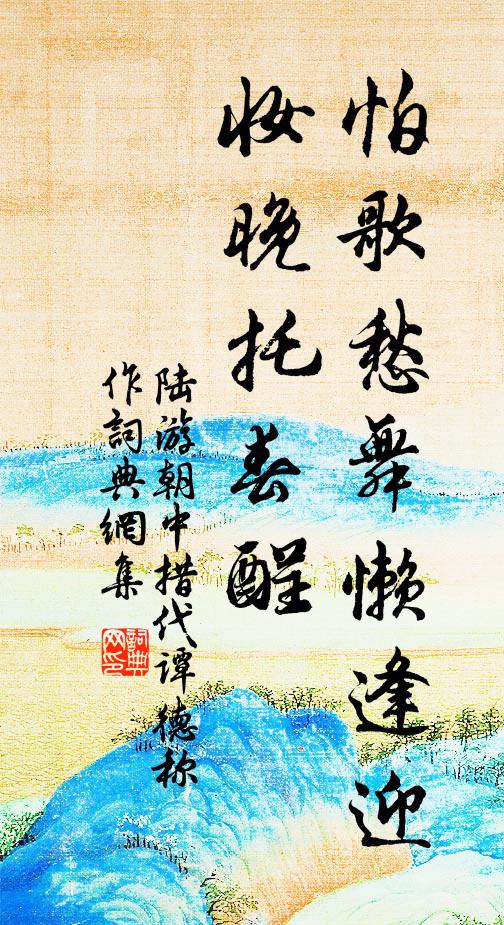 怕歌愁舞懒逢迎
妆晚托春酲
陆游朝中措代谭德称
作词典網集
詞典網印